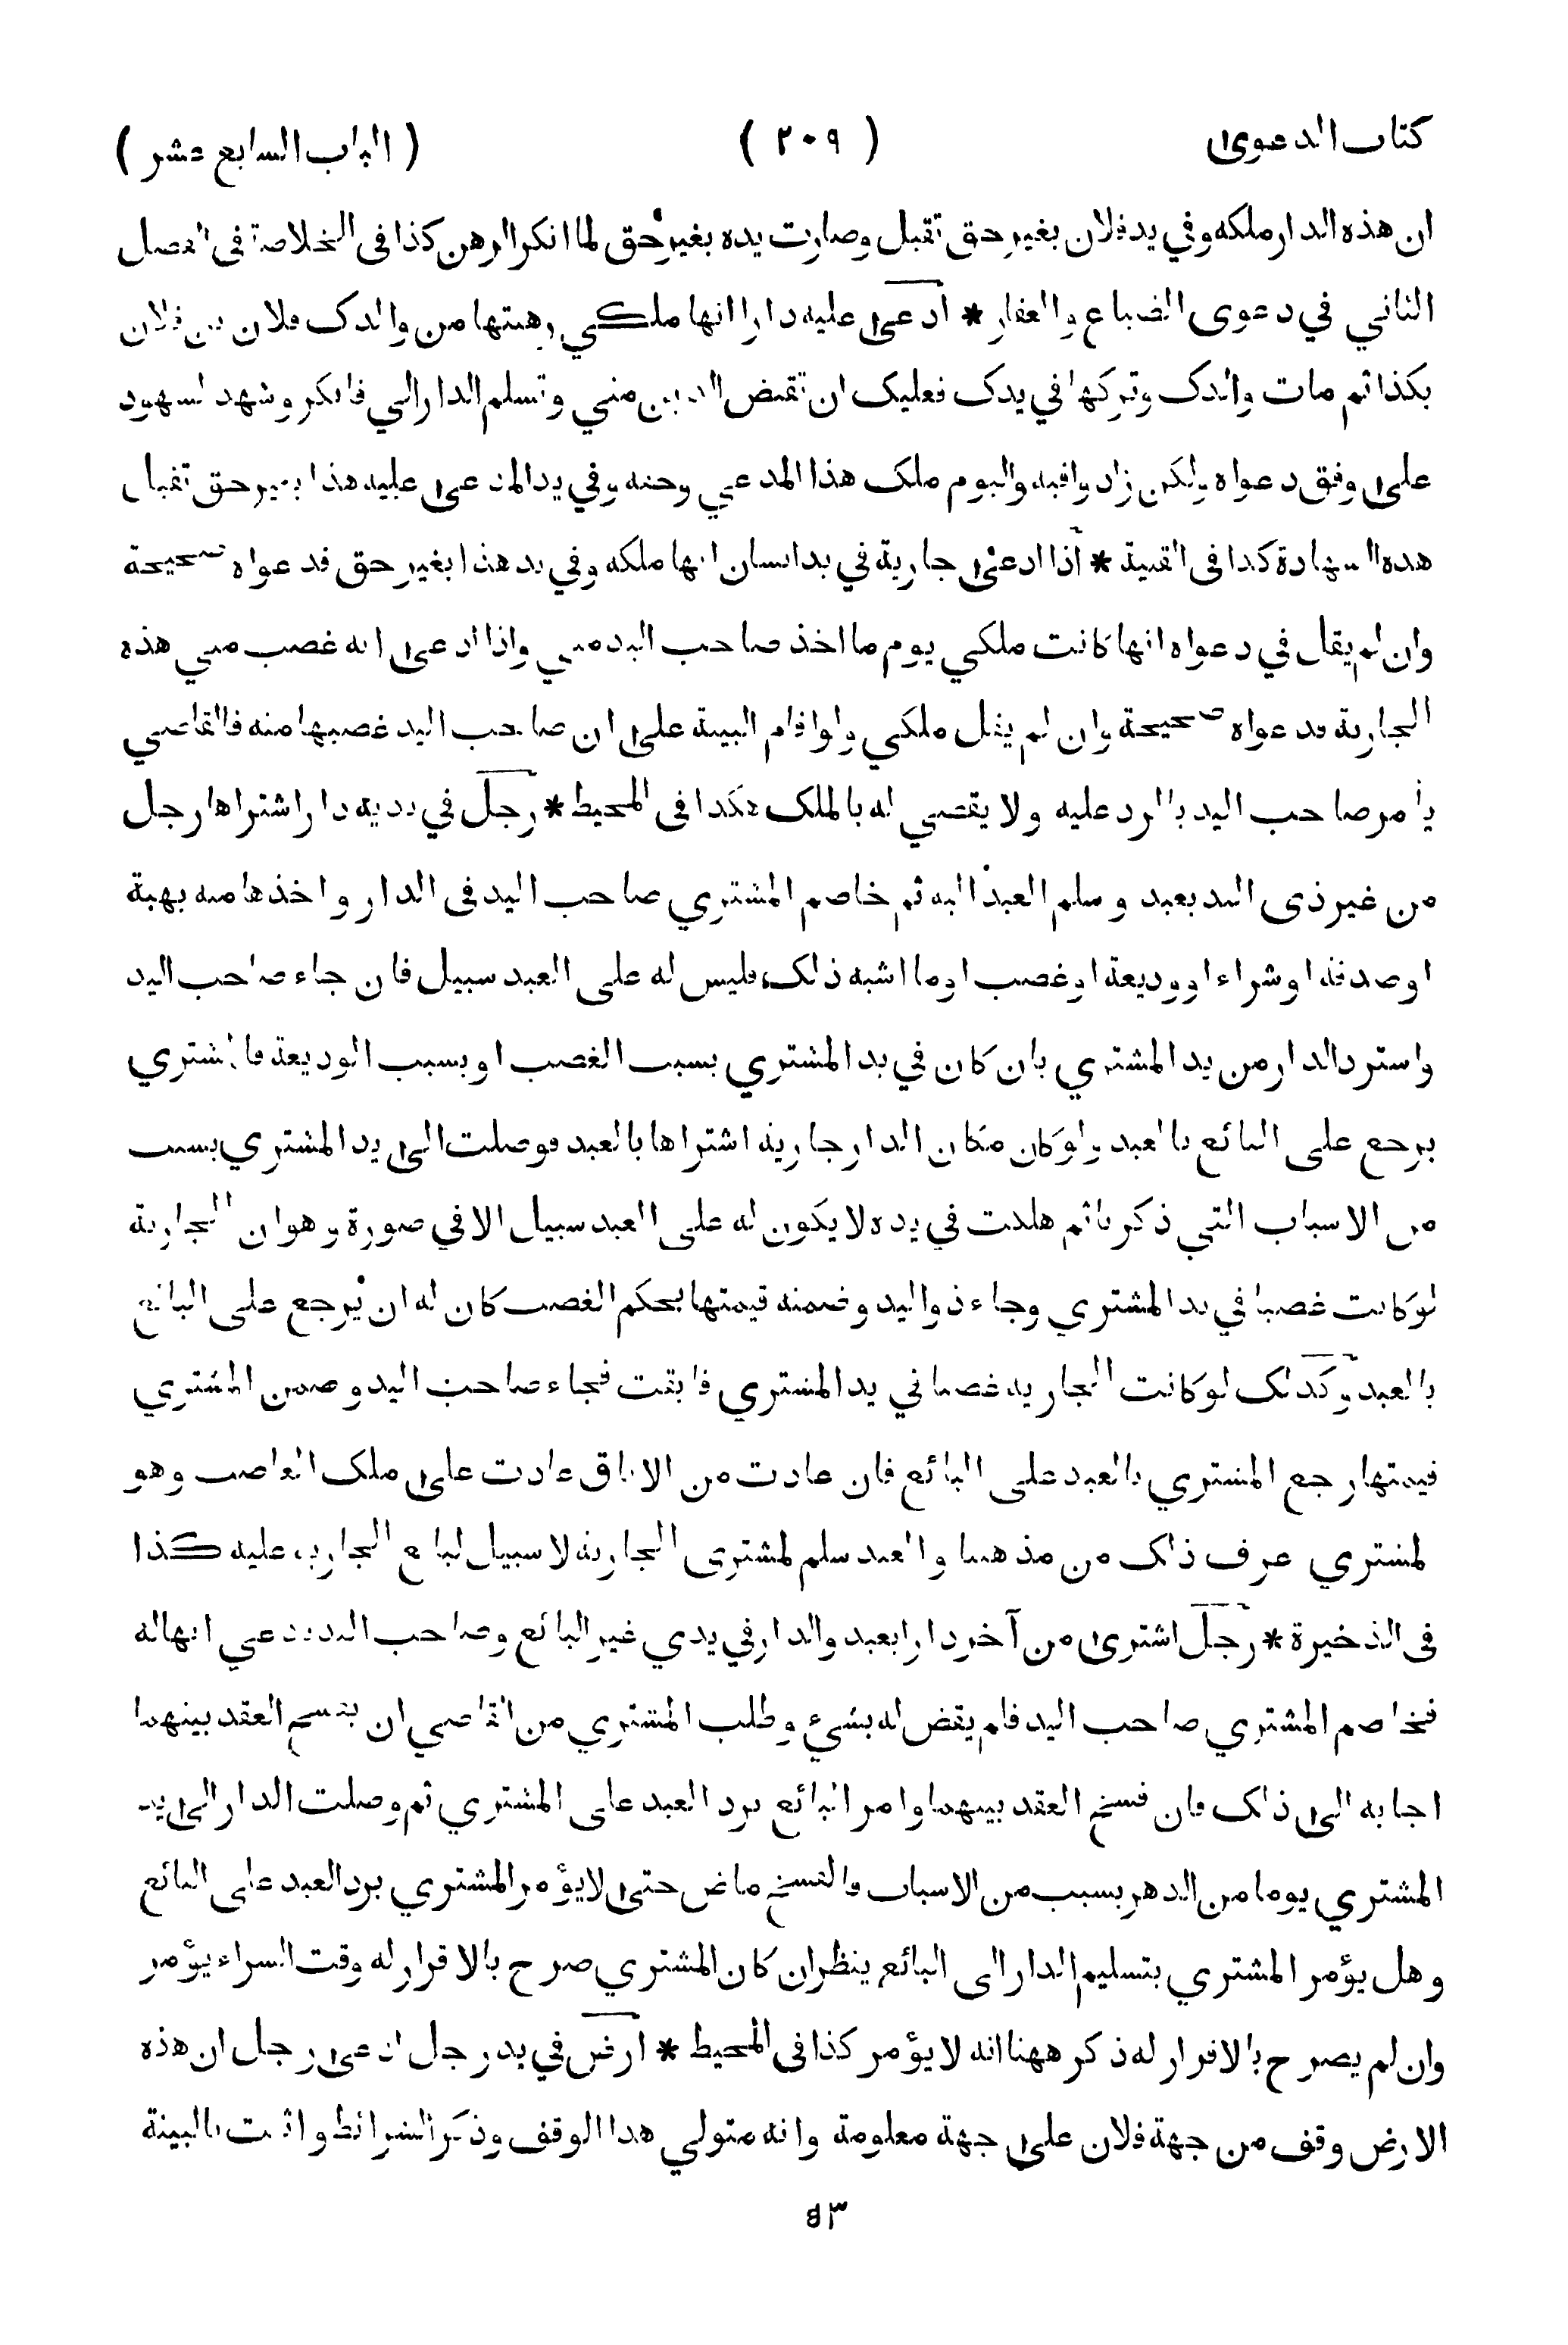 كتاب الدعوى ( ٢٠٩ ) ( الباب السابع عشر )
ان هذه الدار ملكه وفي يد فلان بغير حق تقبل وصارت يده بغير حق لما انكر الرهن كذا فى الخلاصة فى الفصل
الثاني في دعوى الضياع والعقار * ادعى عليه دارا انها ملكي رهنتها من والدك فلان بن فلان
بكذا ثم مات والدك وتركها في يدك فعليك ان تقبض الدين مني وتسلم الدار الي فانكر وشهد الشهود
على وفق دعواه ولكن زادوا فيه واليوم ملك هذا المدعي وحقه وفي يد المدعى عليه هذا بغير حق تقبل
هذه الشهادة كذا فى القنية * اذا ادعى جارية في يد انسان انها ملكه وفي يد هذا بغير حق فدعواه صحيحة
وان لم يقل في دعواه انها كانت ملكي يوم ما اخذ صاحب اليد مني واذا ادعى انه غصب مني هذه
الجارية فدعواه صحيحة وان لم يقل ملكي ولو اقام البينة على ان صاحب اليد غصبها منه فالقاضي
يأمر صاحب اليد بالرد عليه ولا يقضي له بالملك هكذا فى المحيط * رجل في يديه دار اشتراها رجل
من غير ذى اليد بعبد وسلم العبد اليه ثم خاصم المشتري صاحب اليد فى الدار واخذها منه بهبة
او صدقة او شراء او وديعة او غصب او ما اشبه ذلك فليس له على العبد سبيل فان جاء صاحب اليد
واسترد الدار من يد المشتري بان كان في يد المشتري بسبب الغصب او بسبب الوديعة فالمشتري
يرجع على البائع بالعبد ولو كان مكان الدار جارية اشتراها بالعبد فوصلت الى يد المشتري بسبب
من الاسباب التي ذكرنا ثم هلكت في يده لا يكون له على العبد سبيل الا في صورة وهو ان الجارية
لو كانت غصبا في يد المشتري وجاء ذو اليد وضمنه قيمتها بحكم الغصب كان له ان يرجع على البائع
بالعبد وكذلك لو كانت الجارية غصبا في يد المشتري فابقت فجاء صاحب اليد وضمن المشتري
قيمتها رجع المشتري بالعبد على البائع فان عادت من الاباق عادت على ملك الغاصب وهو
لمشتري عرف ذلك من مذهبنا والعبد سلم لمشترى الجارية لا سبيل لبائع الجارية عليه كذا
فى الذخيرة * رجل اشترى من آخر دارا بعبد والدار في يدي غير البائع وصاحب اليد يدعي انها له
فخاصم المشتري صاحب اليد فلم يقض له بشيء وطلب المشتري من القاضي ان يفسخ العقد بينهما
اجابه الى ذلك فان فسخ العقد بينهما وامر البائع برد العبد على المشتري ثم وصلت الدار الى يد
المشتري يوما من الدهر بسبب من الاسباب فالفسخ ماض حتى لا يؤمر المشتري برد العبد على البائع
وهل يؤمر المشتري بتسليم الدار الى البائع ينظر ان كان المشتري صرح بالاقرار له وقت الشراء يؤمر
وان لم يصرح بالاقرار له ذكر ههنا انه لا يؤمر كذا فى المحيط * ارض في يد رجل ادعى رجل ان هذه
الارض وقف من جهة فلان على جهة معلومة وانه متولي هذا الوقف وذكر الشرائط واثبت بالبينة